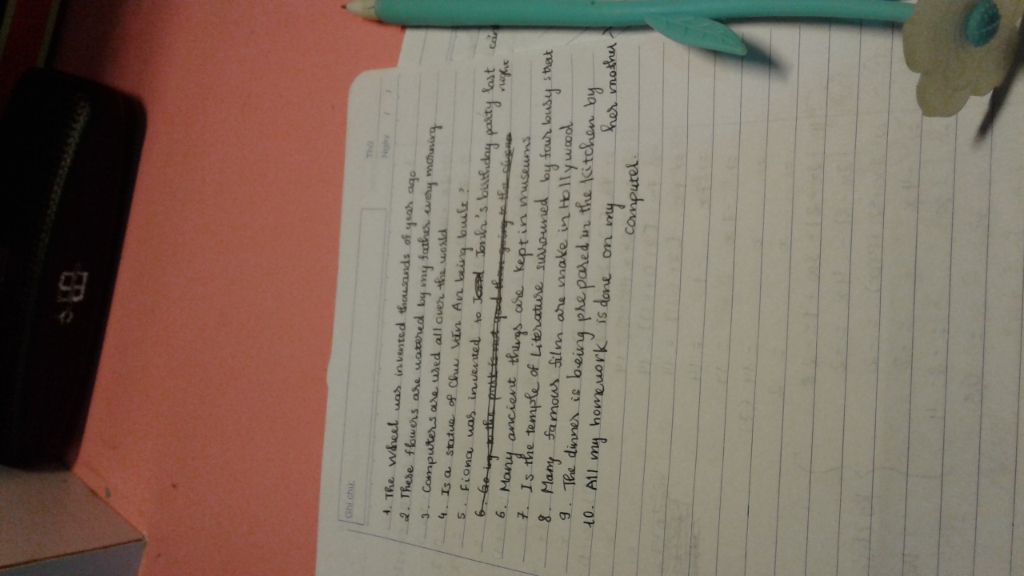 Ghi chú:
Thứ
Ngày / /
1. The Wheel was invented thousands of year ago
2. These flowers are watered by my father every morning
3. Computers are used all over the world
4. Is a statue of Chu Văn An being built?
5. Fiona was invented to Tonk's birthday party last night
6. Many ancient things are kept in museums
7. Is the temple of Literature surround by four busy street
8. Many famous film are make in Hollywood
9. The dinner is being prepared in the kitchen by her mother
10. All my homework is done on my computer.